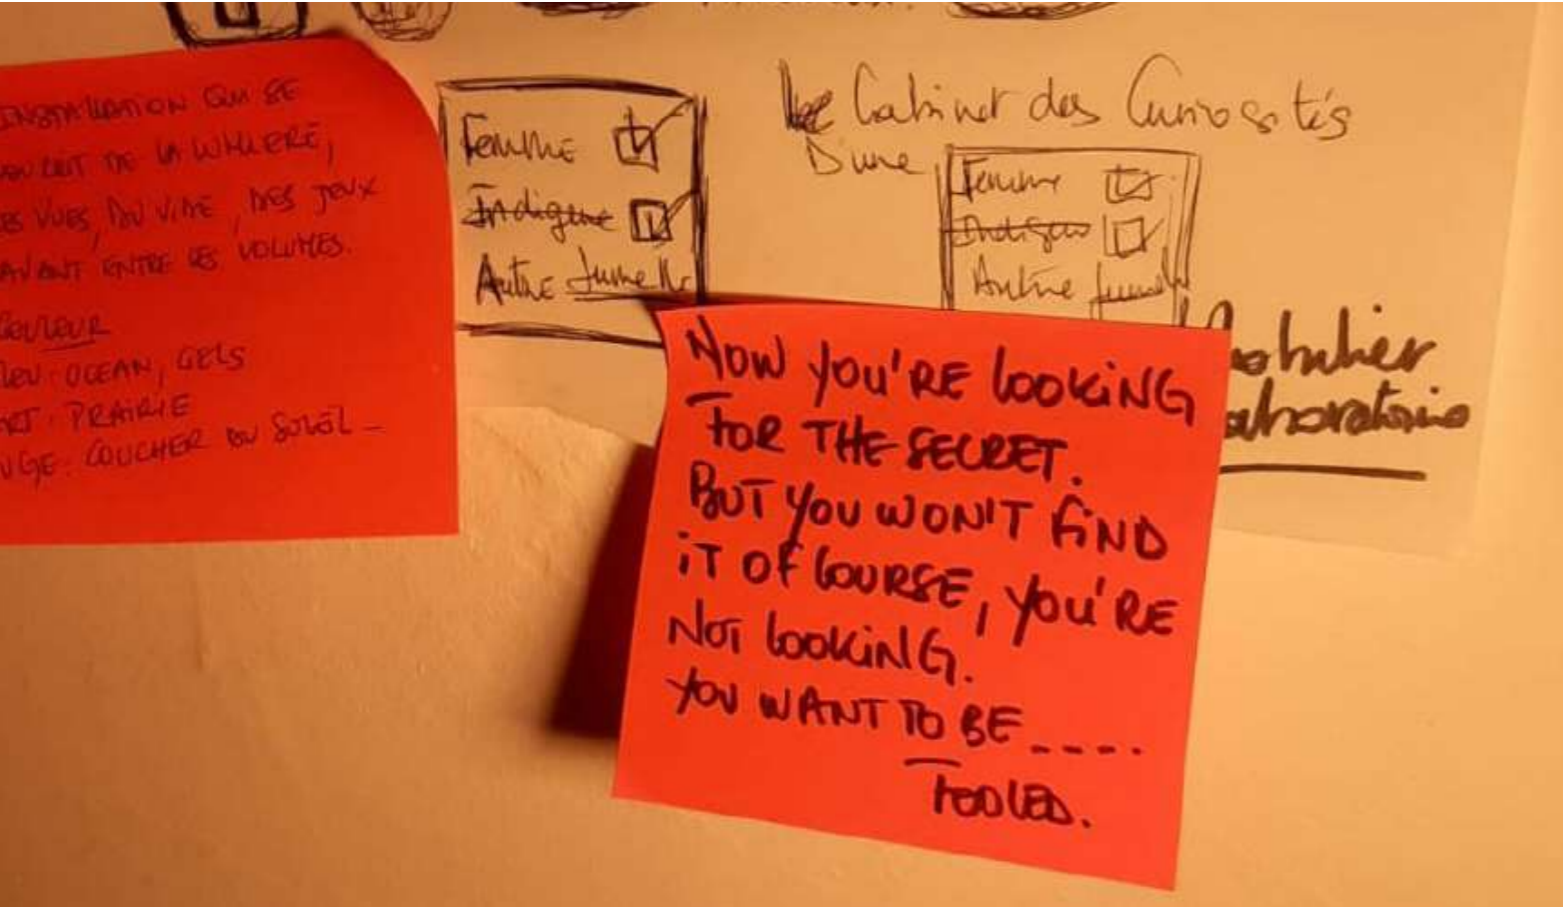 INSTALLATION QUI SE
DE LA LUMIERE,
VUES, DU VIDE, DES JEUX
AVANT ENTRE LES VOLUMES.
COULEUR
OCEAN, CIELS
PRAIRIE
COUCHER DU SOLEIL _
Femme
Indigene
Autre Jumelle
Le Cabinet des Curiosités
D'une
Femme
Indigene
Autre Jumelle
Mobilier
Laboratoire
NOW YOU'RE LOOKING
FOR THE SECRET.
BUT YOU WON'T FIND
IT OF COURSE, YOU'RE
NOT LOOKING.
YOU WANT TO BE _ _ _ _ .
FOOLED.